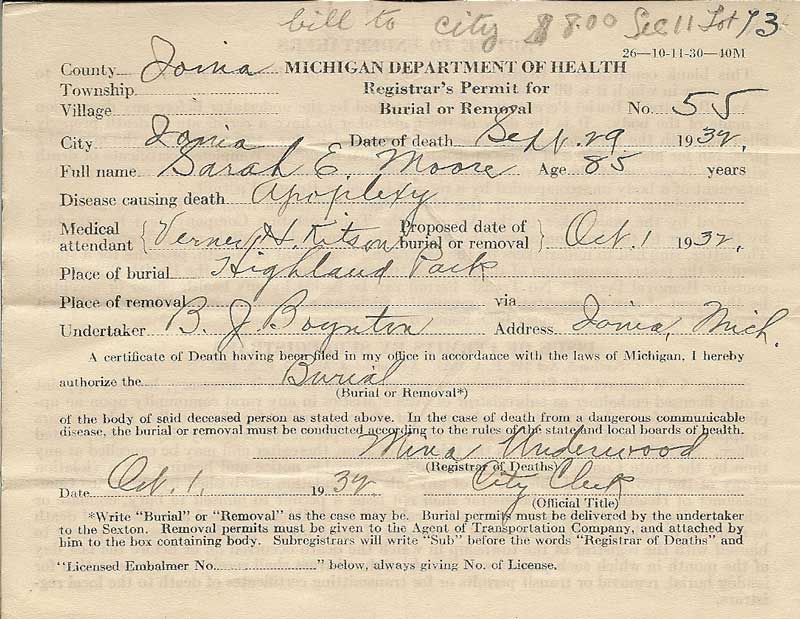 bill to city $8.00 Sec 11 Lot 93
26—10-11-30—40M
County Ionia MICHIGAN DEPARTMENT OF HEALTH
Township Registrar's Permit for
Village Burial or Removal No. 55
City Ionia Date of death Sept. 29 1932,
Full name Sarah E. Moore Age 85 years
Disease causing death Apoplexy
Medical attendant { Verner H. Kitson Proposed date of burial or removal } Oct. 1 1932,
Place of burial Highland Park
Place of removal via
Undertaker B. J. Boynton Address Ionia, Mich.
A certificate of Death having been filed in my office in accordance with the laws of Michigan, I hereby
authorize the Burial
(Burial or Removal*)
of the body of said deceased person as stated above. In the case of death from a dangerous communicable
disease, the burial or removal must be conducted according to the rules of the state and local boards of health.
Mina Underwood
(Registrar of Deaths)
Date Oct. 1, 1932 City Clerk
(Official Title)
*Write "Burial" or "Removal" as the case may be. Burial permits must be delivered by the undertaker
to the Sexton. Removal permits must be given to the Agent of Transportation Company, and attached by
him to the box containing body. Subregistrars will write "Sub" before the words "Registrar of Deaths" and
"Licensed Embalmer No. " below, always giving No. of License.